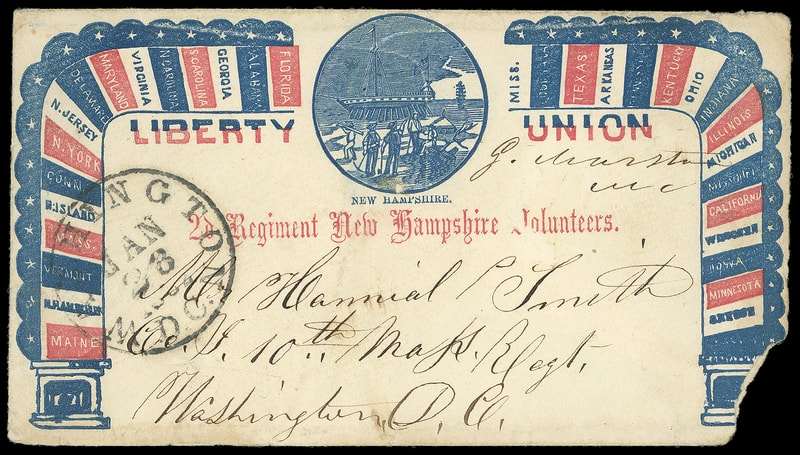 MAINE
N.HAMPSHIRE
VERMONT
MASS.
R.ISLAND
CONN
N.YORK
N.JERSEY
DELAWARE
MARYLAND
VIRGINIA
N.CAROLINA
S.CAROLINA
GEORGIA
ALABAMA
FLORIDA
MISS.
LOUISIANA
TEXAS
ARKANSAS
KENTUCKY
OHIO
INDIANA
ILLINOIS
MICHIGAN
MISSOURI
CALIFORNIA
IOWA
MINNESOTA
LIBERTY
UNION
NEW HAMPSHIRE.
G. Marston
MC
2d Regiment New Hampshire Volunteers.
JAN
28
D.C.
Mr. Hannial Smith
Co. I. 10th Mass. Regt.
Washington, D. C.